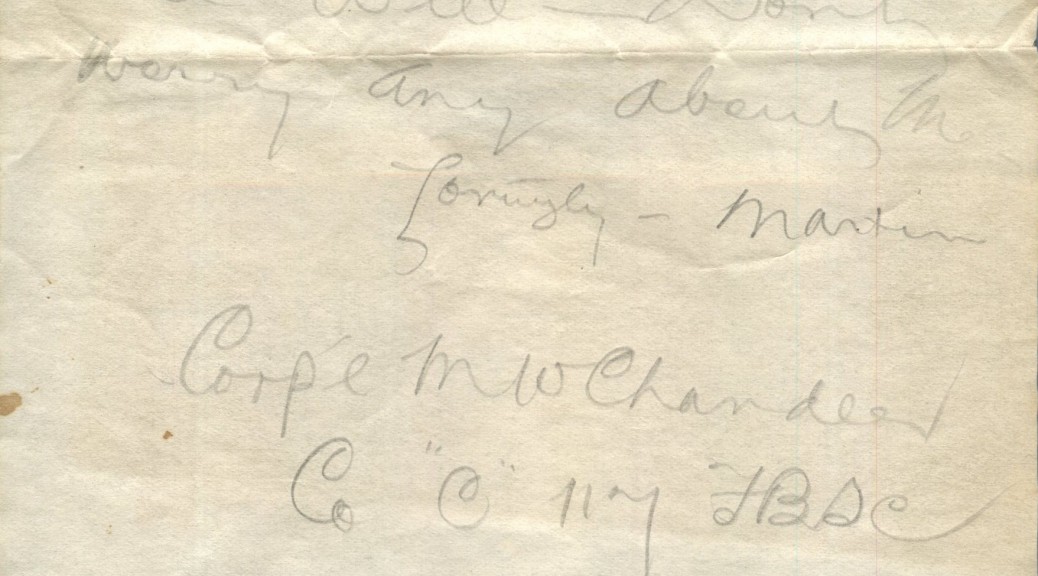 Will - Dont
worry any about me
Lovingly - Martin
Corp'l M W Chandler
Co "C" 117 F B S C